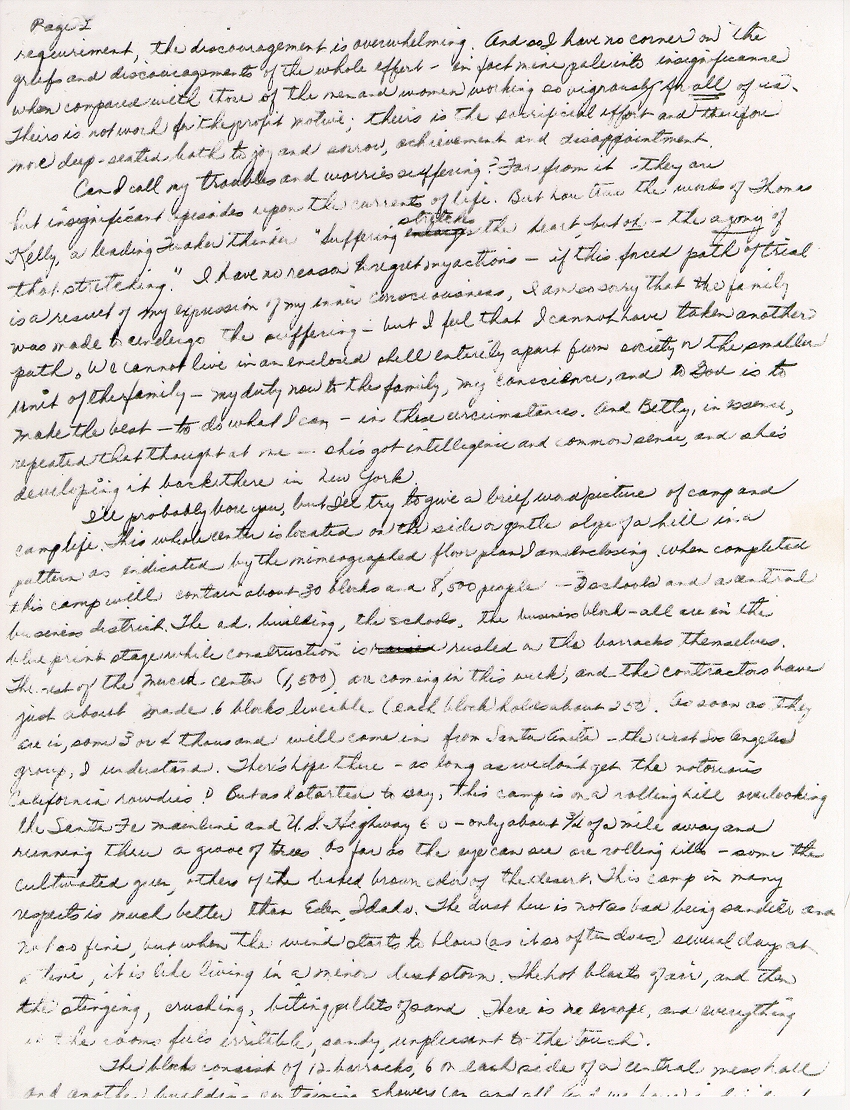 Page 2
requirement, the discouragement is overwhelming. And so I have no corner on the
griefs and discouragements of the whole effort - in fact mine pale into insignificance
when compared with those of the men and women working so vigorously for all of us.
Theirs is not work for the profit motive; theirs is the sacrificial effort and therefore
more deep-seated both to joy and sorrow, achievement and disappointment.
Can I call my troubles and worries suffering? Far from it - they are
but insignificant episodes upon the currents of life. But how true the words of Thomas
Kelly, a leading Quaker thinker "Suffering stretches the heart but oh - the agony of
that stretching." I have no reason to regret my actions - if this forced path of trial
is a result of my expression of my inner consciousness, I am so sorry that the family
was made to undergo the suffering - but I feel that I cannot have taken another
path. We cannot live in an enclosed shell entirely apart from society or the smaller
unit of the family - my duty now to the family, my conscience, and to God is to
make the best - to do what I can - in these circumstances. And Betty, in essence,
repeated that thought at me - she's got intelligence and common sense, and she's
developing it back there in New York.
I'll probably bore you, but I'll try to give a brief word picture of camp and
camp life. This whole center is located on the side or gentle slope of a hill in a
pattern as indicated by the mimeographed floor plan I am enclosing. When completed
this camp will contain about 30 blocks and 8,500 people - 3 schools and a central
business district. The ad. building, the schools, the business block - all are in the
blue print stage while construction is rushed on the barracks themselves.
The rest of the Merced center (1,500) are coming in this week, and the contractors have
just about made 6 blocks liveable. (each block holds about 250). As soon as they
are in, some 3 or 4 thousand will come in from Santa Anita - the west Los Angeles
group, I understand. There's hope there - as long as we don't get the notorious
California rowdies! But as I started to say, this camp is on a rolling hill overlooking
the Santa Fe mainline and U.S. Highway 60 - only about 3/4 of a mile away and
running thru a grove of trees. As far as the eye can see are rolling hills - some the
cultivated green, others of the baked brown color of the desert. This camp in many
respects is much better than Eden, Idaho. The dust here is not as bad being sandier and
not so fine, but when the wind starts to blow (as it so often does) several days at
a time, it is like living in a minor dust storm. The hot blasts of air, and then
the stinging, crushing, biting pellets of sand. There is no escape, and everything
in the rooms feels irritable, sandy, unpleasant to the touch.
The blocks consist of 12 barracks, 6 on each side of a central mess hall
and another building containing showers